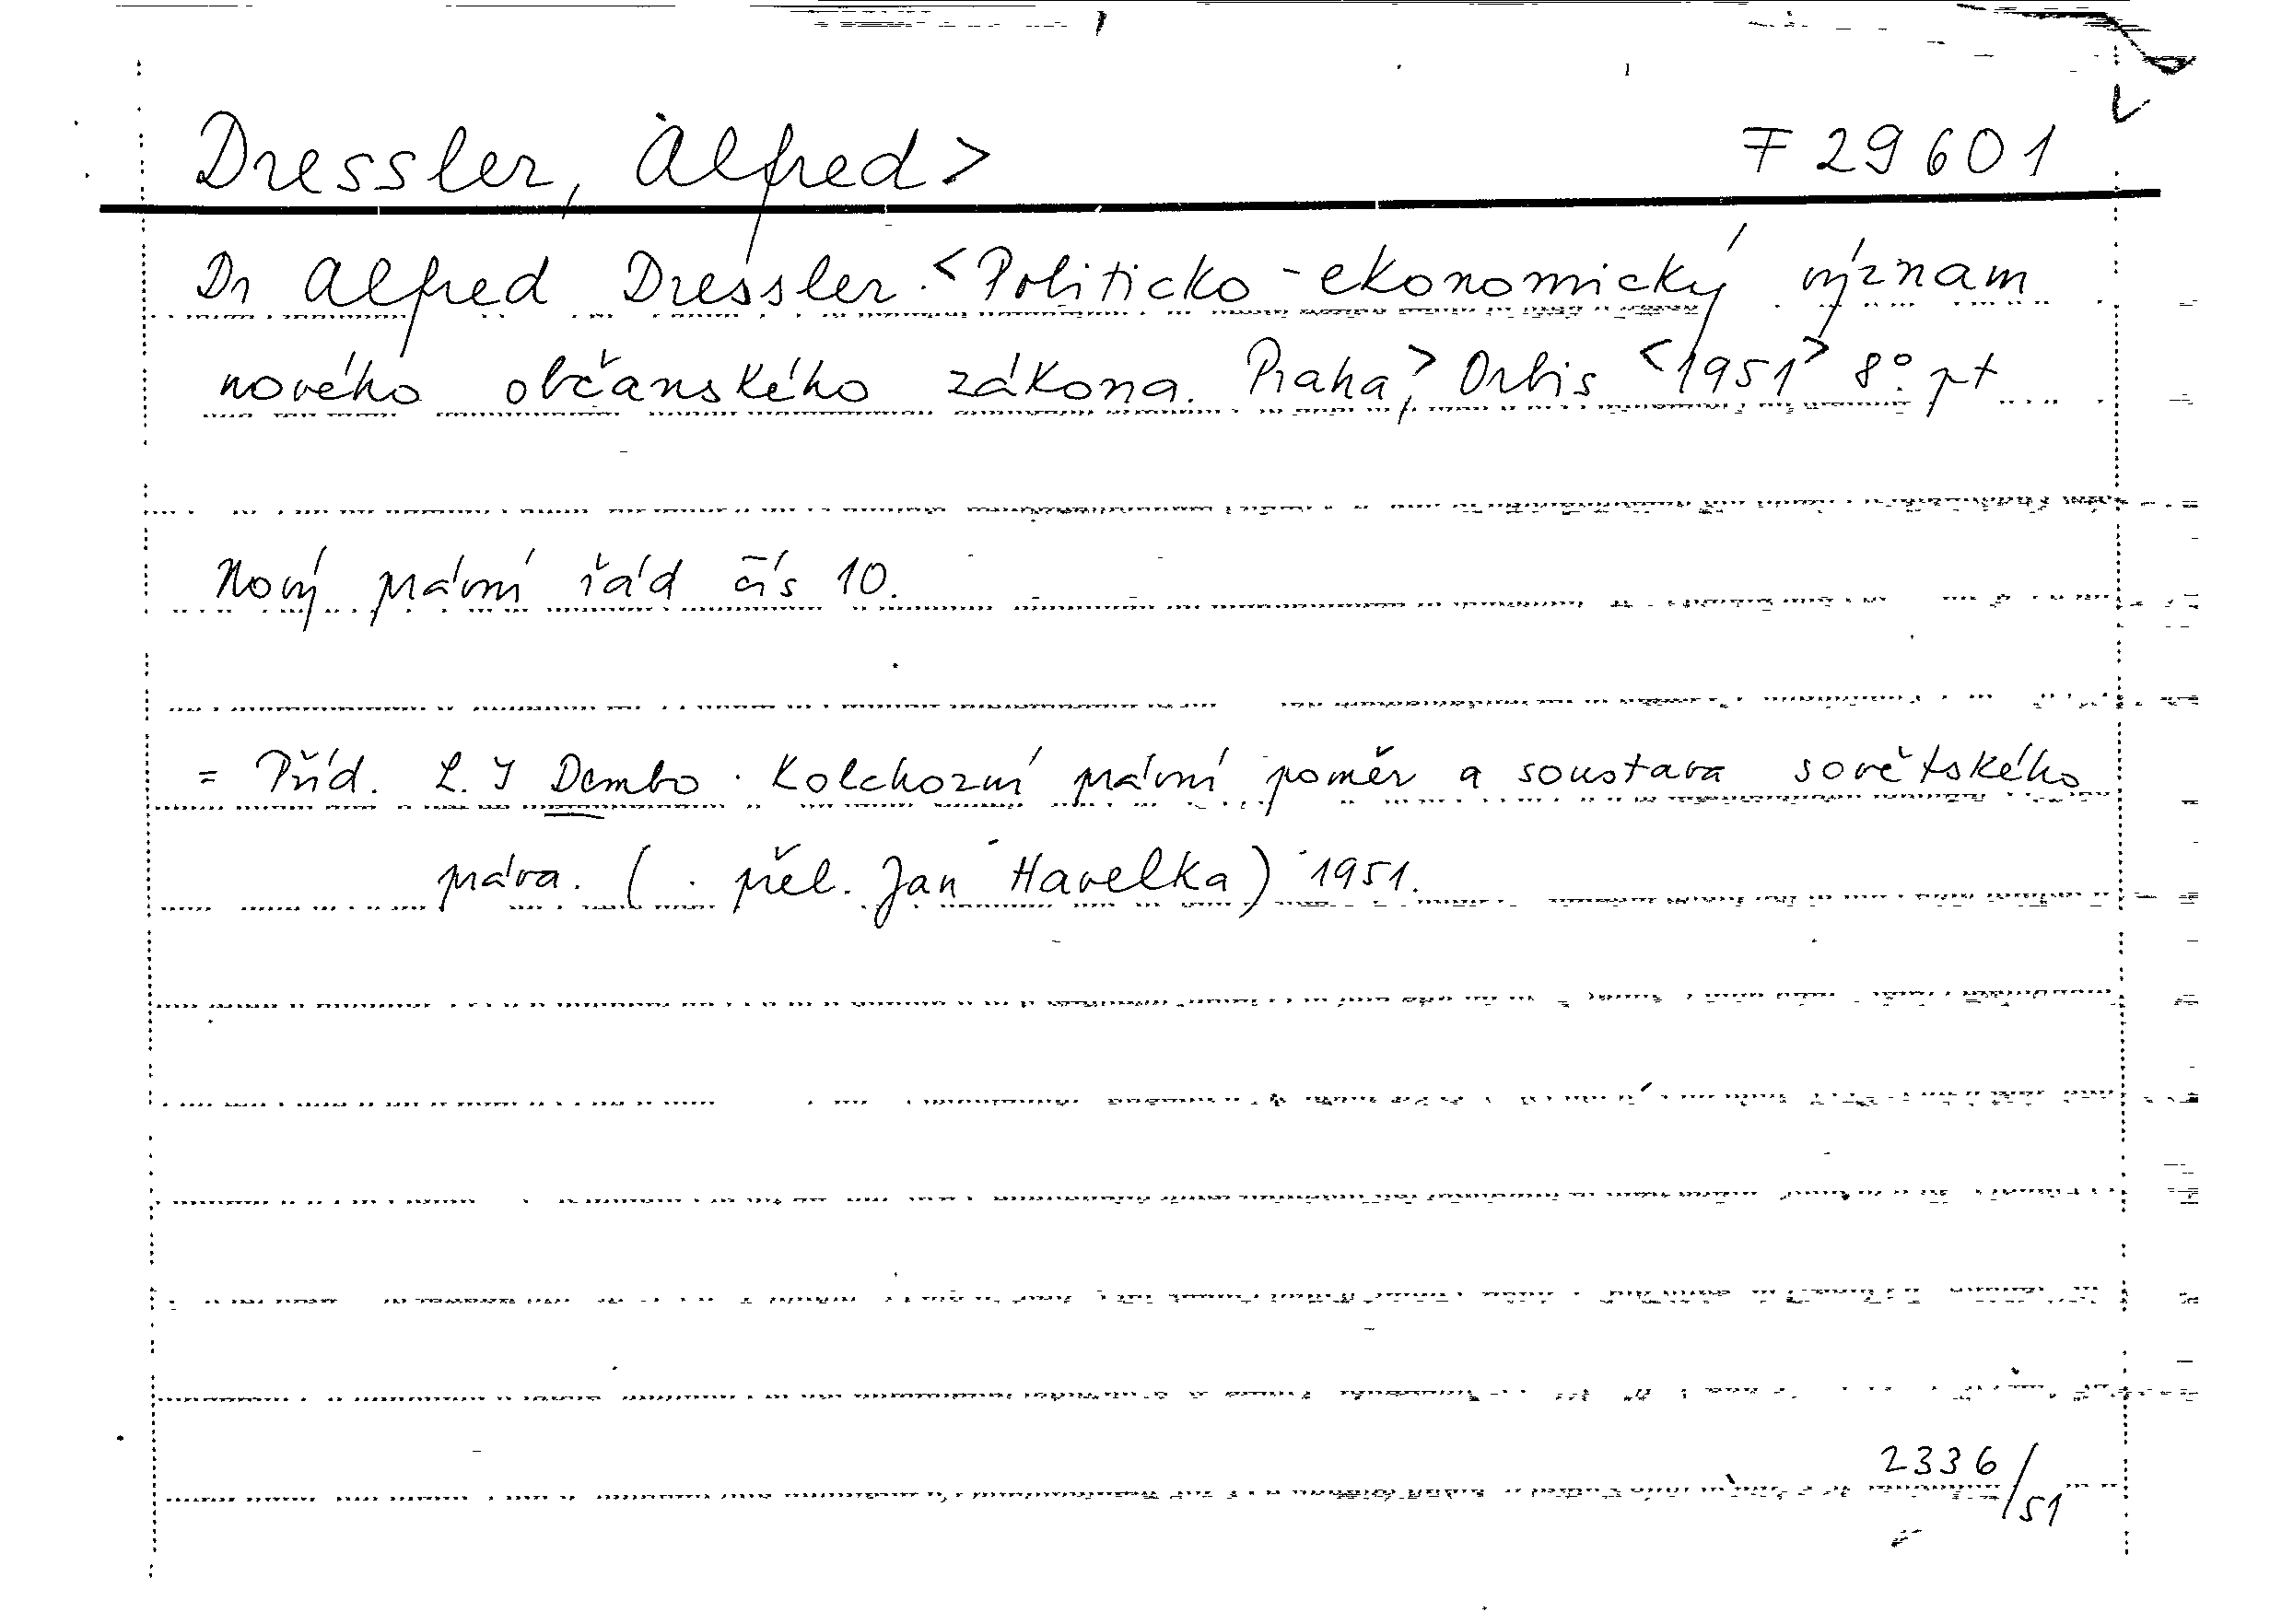 Dressler, Alfred> F 29601
Dr Alfred Dressler. <Politicko-ekonomický význam
nového občanského zákona. Praha>, Orbis <1951> 8° pt
Nový právní řád čís 10.
= Příd. L. I Dembo. Kolchozní právní poměr a soustava sovětského
práva. (. přel. Jan Havelka) 1951.
2336/51